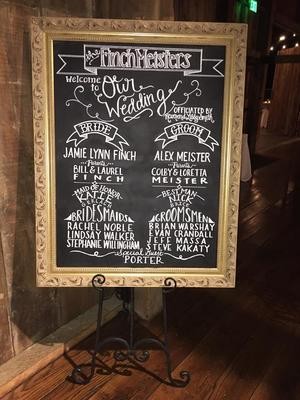 the FinchMeisters
Welcome to Our Wedding
OFFICIATED BY
BRIDE
JAMIE LYNN FINCH
Parents
BILL & LAUREL
FINCH
MAID OF HONOR
KATIE
BRIDESMAIDS
RACHEL NOBLE
LINDSAY WALKER
STEPHANIE WILLINGHAM
GROOM
ALEX MEISTER
Parents
COLBY & LORETA
MEISTER
BEST MAN
NICK
GROOMSMEN
BRIAN WARSHAY
EVAN CRANDALL
JEFF MASSA
STEVE KAKATY
Special Guest
PORTER